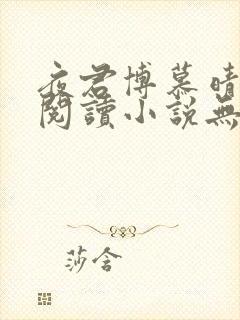 夜君博慕晴
閱讀小說無
莎含